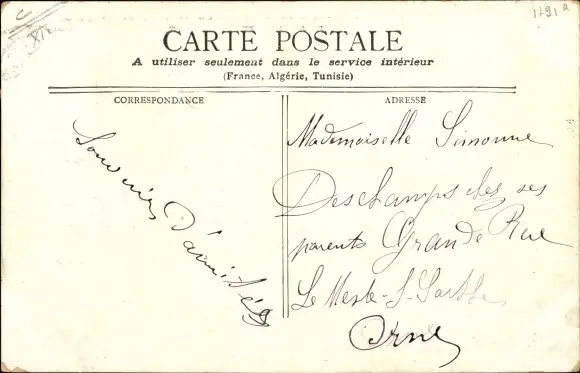 1791 a
XI
CARTE POSTALE
A utiliser seulement dans le service intérieur
(France, Algérie, Tunisie)
CORRESPONDANCE
ADRESSE
Souvenirs D'amitiés
Mademoiselle Simonne
Deschamps chez ses
parents Grande Rue
Le Mesle-S-Sarthe
Orne